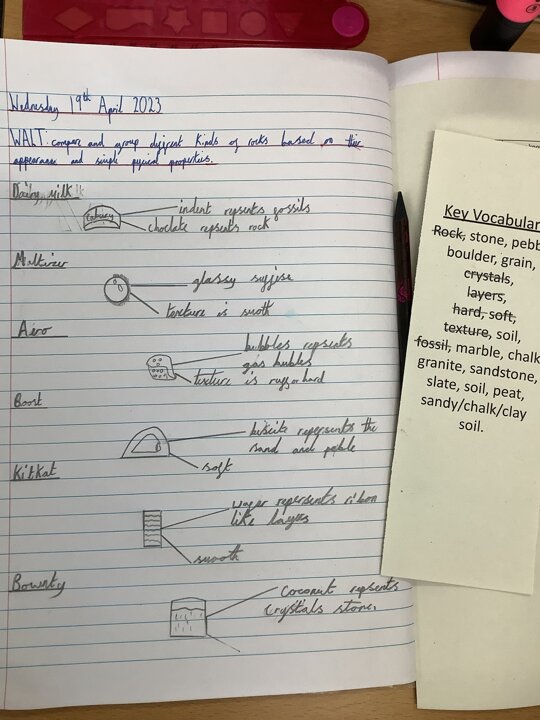 Wednesday 19th April 2023
WALT: compare and group difrent kinds of rocks based on thier
appearance and simple pysical properties.
Dairy milk
Cabury
indent repsents fossils
choclate repsents rock
Maltizer
glassy surfise
texture is smoth
Aero
bubbles repsents
gas bubles
texture is ruff or hard
Boost
biscits reprsents the
sand and peble
soft
KitKat
wafer reprsents ribon
like layers
smooth
Bownty
coconut repsents
crystials stone.
Key Vocabular
Rock, stone, pebb
boulder, grain,
crystals,
layers,
hard, soft,
texture, soil,
fossil, marble, chalk
granite, sandstone,
slate, soil, peat,
sandy/chalk/clay
soil.